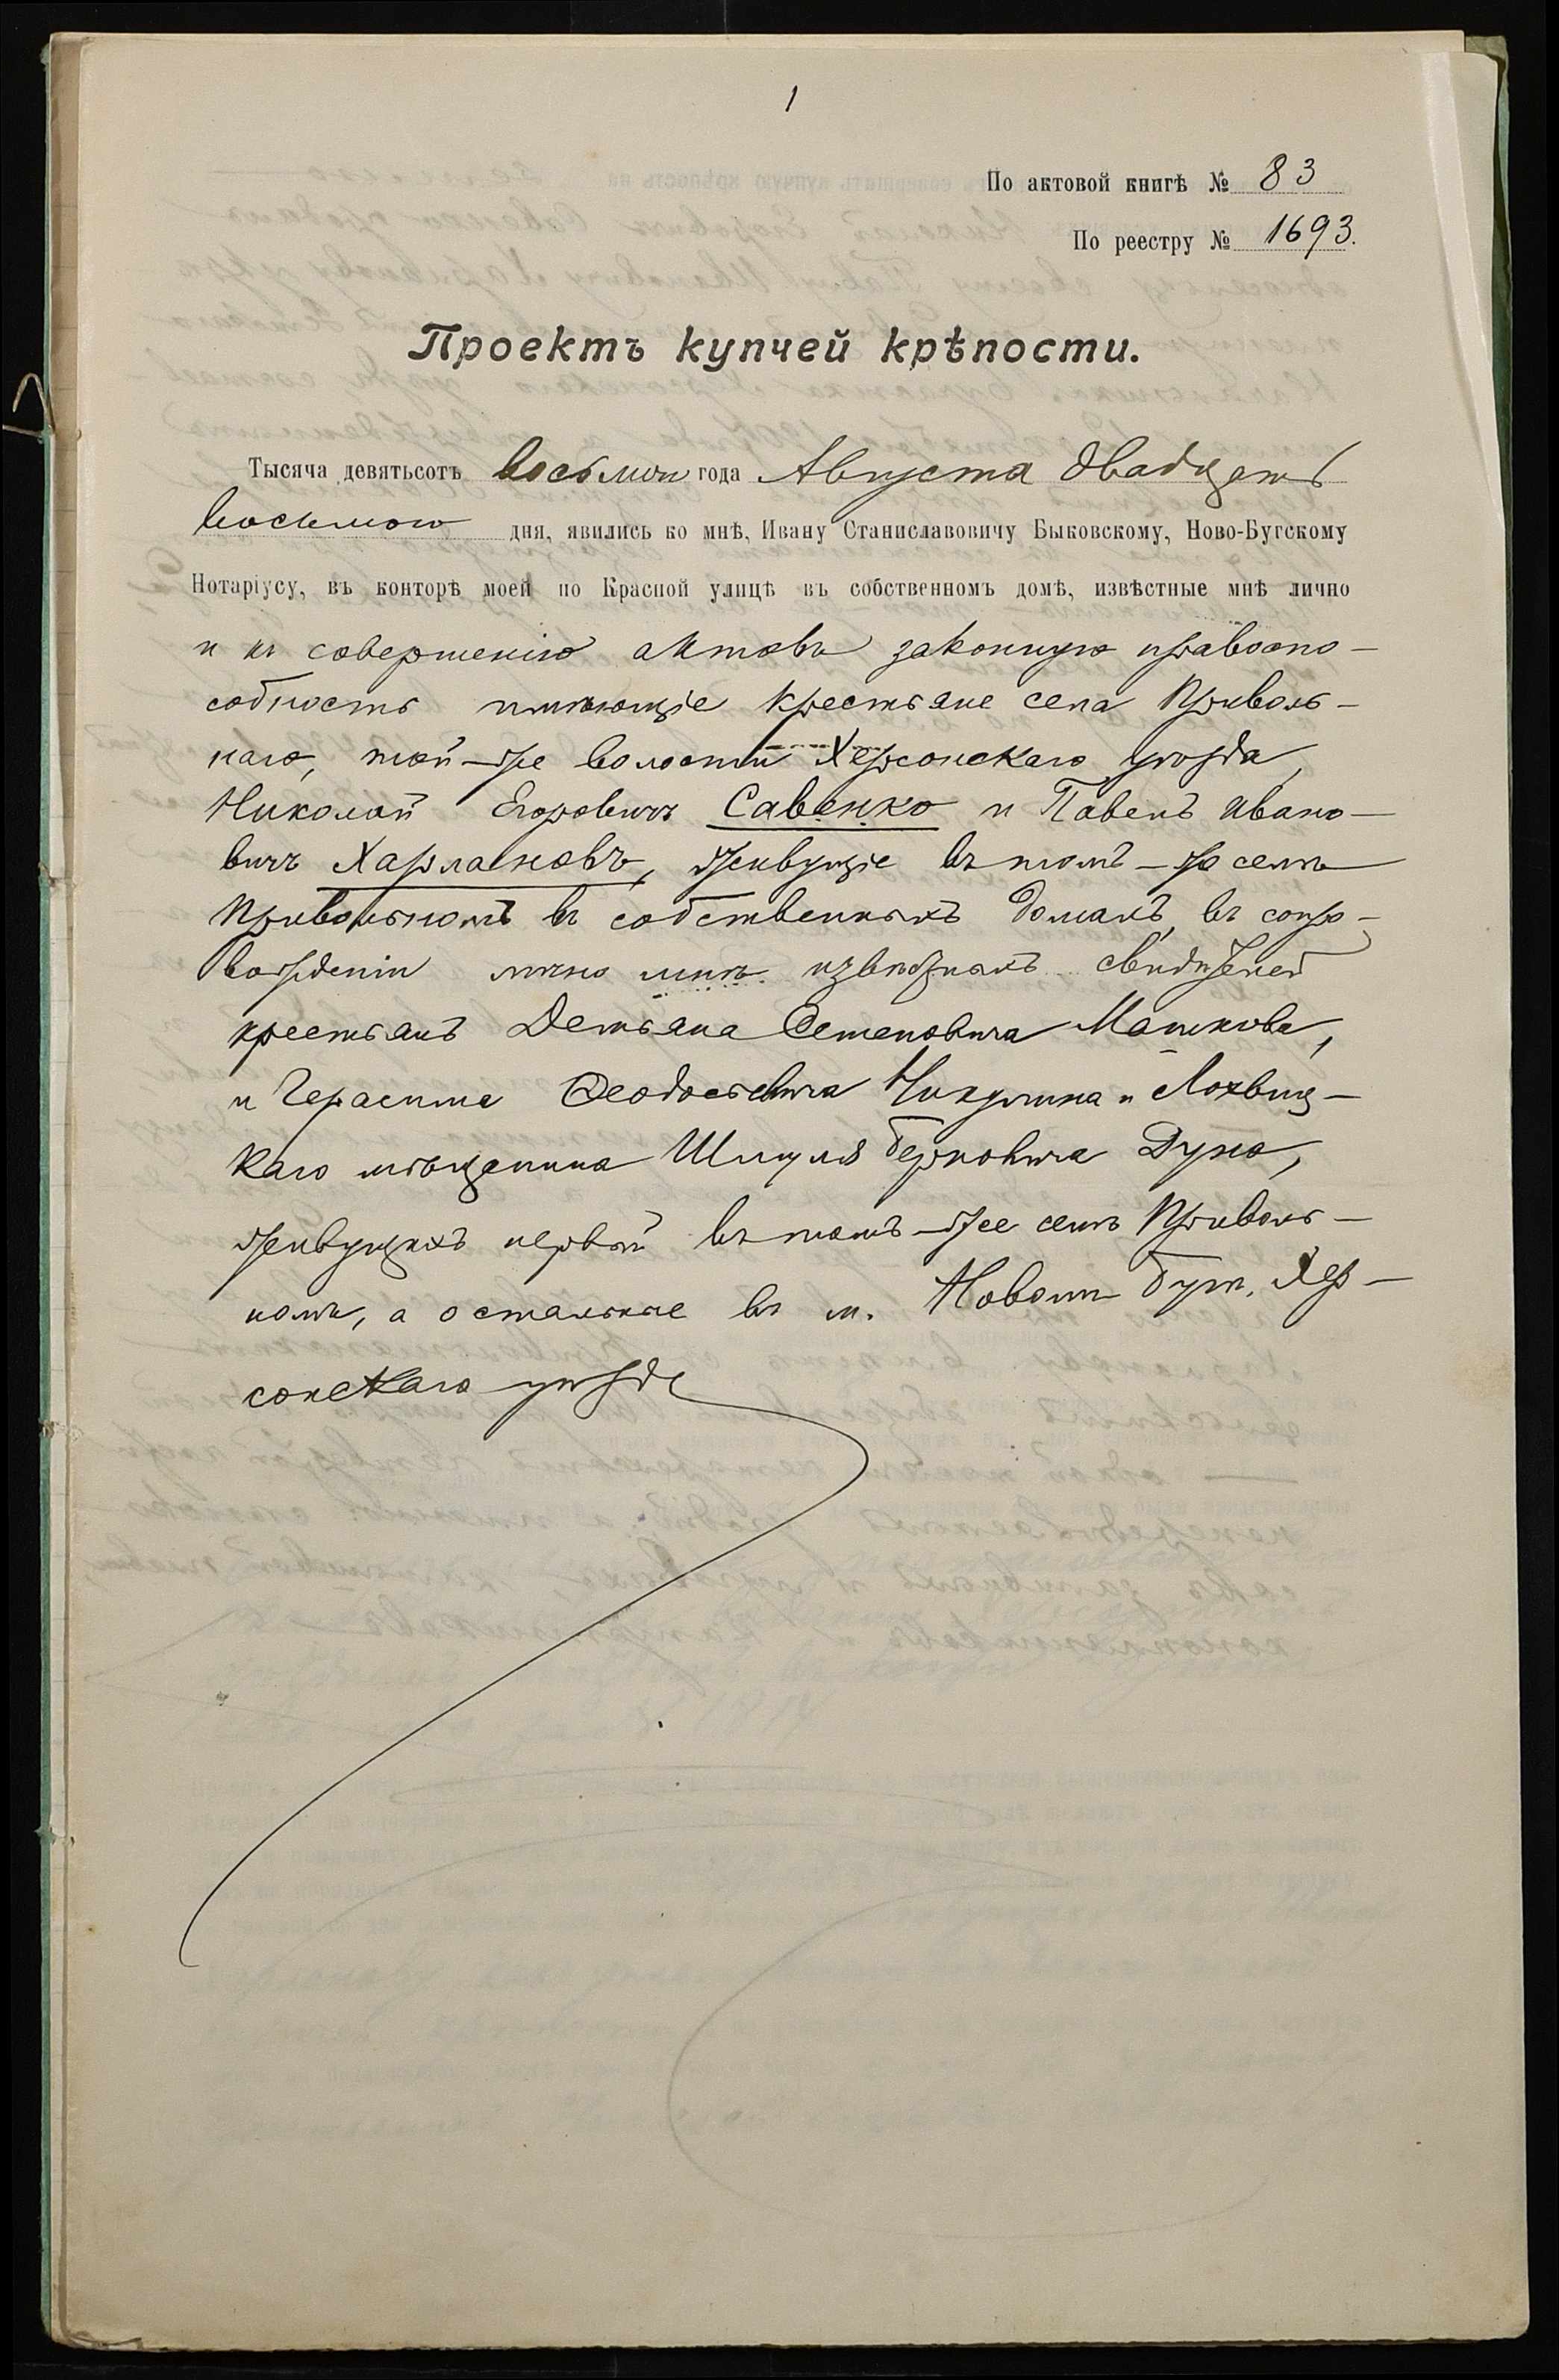 1
По актовой книгѣ № 83
По реестру № 1693.
Проектъ купчей крѣпости.
Тысяча девятьсотъ восьмого года Августа двадцать
восьмого дня, явились ко мнѣ, Ивану Станиславовичу Быковскому, Ново-Бугскому
Нотаріусу, въ конторѣ моей по Красной улицѣ въ собственномъ домѣ, извѣстные мнѣ лично
и къ совершенію актовъ законную правоспо-
собность имѣющіе крестьяне села Приволь-
наго, той-же волости Херсонскаго уѣзда,
Николай Егоровичъ Савенко и Павелъ Ивано-
вичъ Харлановъ, живущіе въ томъ-же селѣ
Привольномъ въ собственныхъ домахъ, въ сопро-
вожденіи лично мнѣ извѣстныхъ свидѣтелей
крестьянъ Демьяна Семеновича Машкова,
и Герасима Ѳеодосьевича и Лохвиц-
каго мѣщанина Шмуля Берковича Дуно,
живущихъ первый въ томъ-же селѣ Приволь-
номъ, а остальные въ м. Новомъ Бугѣ, Хер-
сонскаго уѣзда